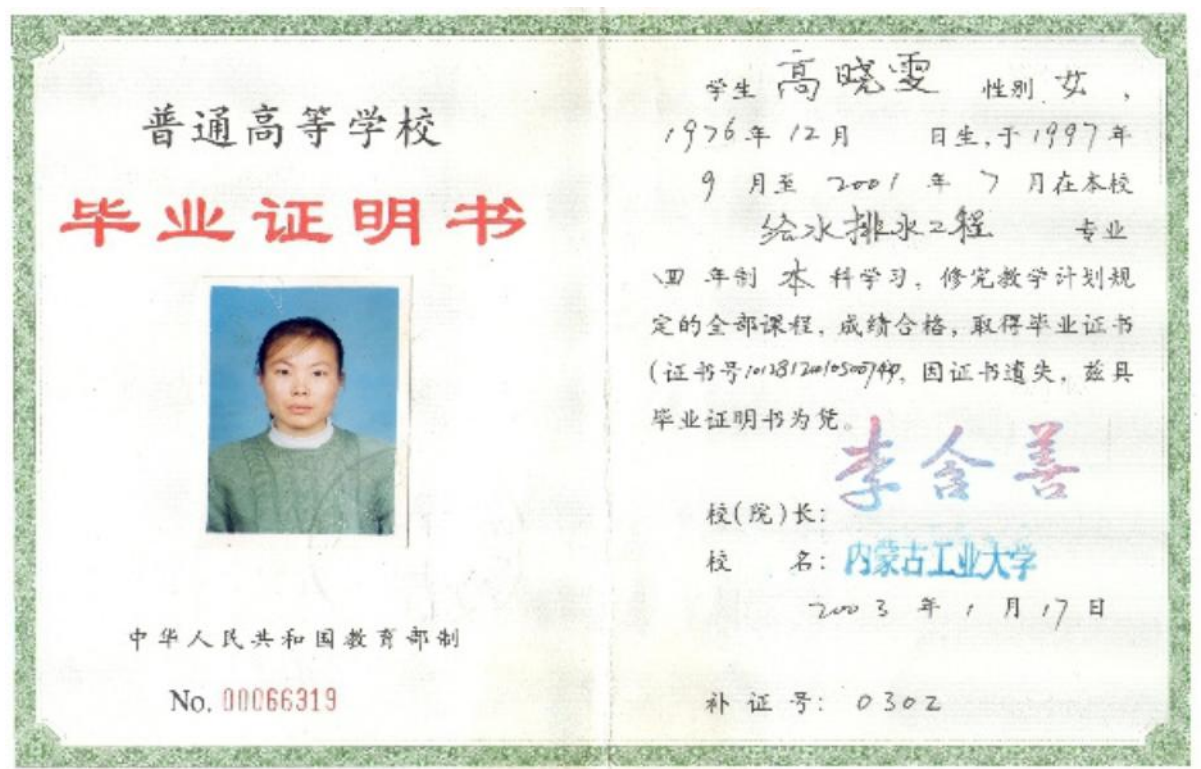 普通高等学校
毕业证明书
中华人民共和国教育部制
No. 00066319
学生 高晓雯 性别 女，
1976年12月 日生，于1997年
9月至2001年7月在本校
给水排水工程 专业
四年制 本科学习，修完教学计划规
定的全部课程，成绩合格，取得毕业证书
(证书号 因证书遗失，兹具
毕业证明书为凭。
校(院)长： 李含善
校 名： 内蒙古工业大学
2003年1月17日
补证号： 0302